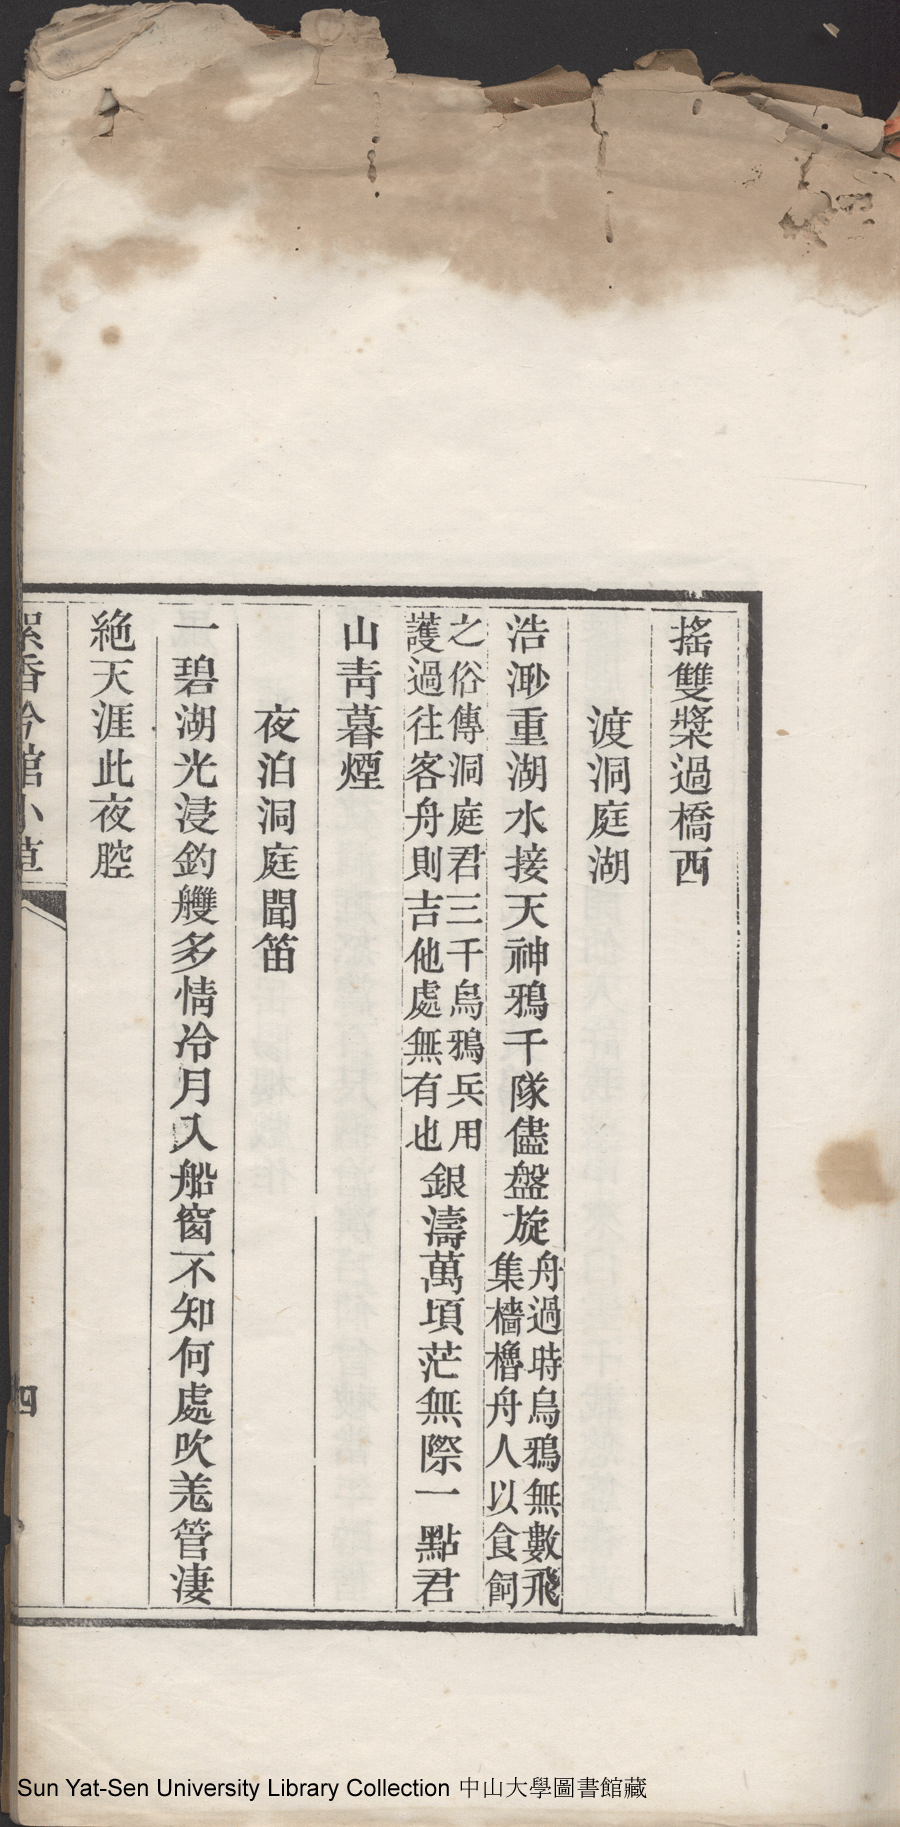 搖雙槳過橋西
渡洞庭湖
浩渺重湖水接天神鴉千隊儘盤旋舟過時烏鴉無數飛集檣櫓舟人以食飼
之俗傳洞庭君三千烏鴉兵用護過往客舟則吉他處無有也銀濤萬頃茫無際一點君
山靑暮煙
夜泊洞庭聞笛
一碧湖光浸釣艭多情冷月入船窗不知何處吹羗管淒
絶天涯此夜腔
絮香吟館小草
四
Sun Yat-Sen University Library Collection 中山大學圖書館藏